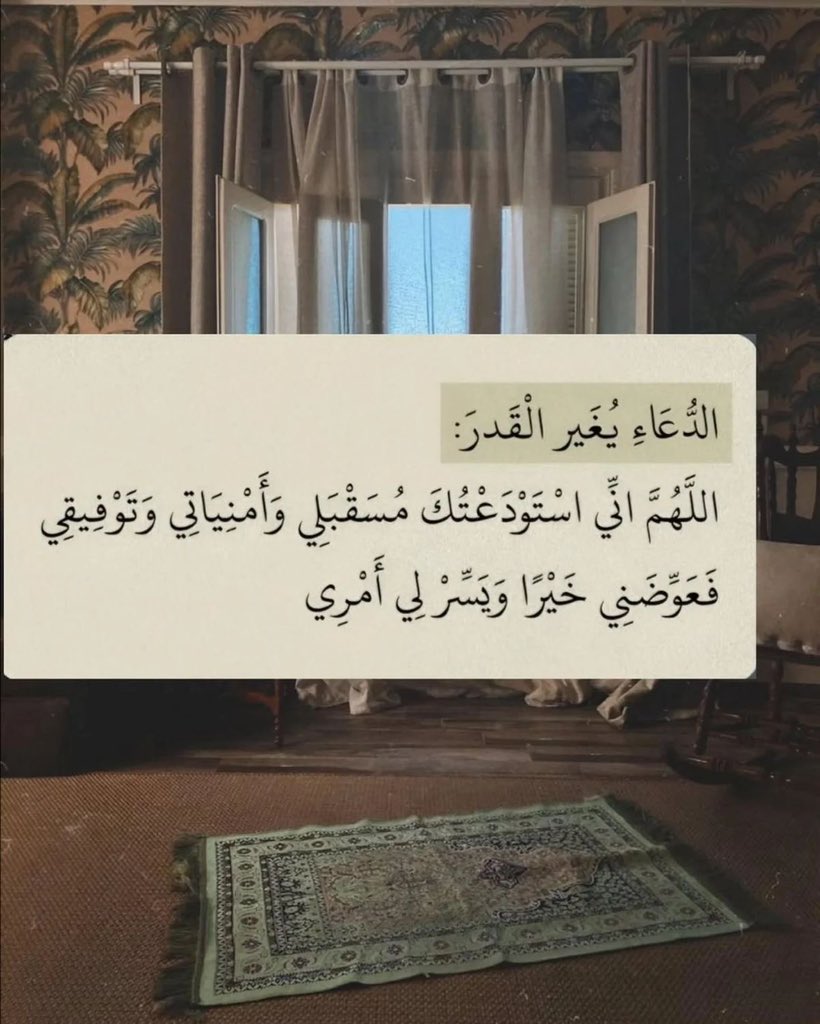 الدُّعَاءِ يُغَير الْقَدرَ:
اللَّهُمَّ انِّي اسْتَوْدَعْتُكَ مُسَقْبَلِي وَأَمْنِيَاتِي وَتَوْفِيقِي
فَعَوِّضَنِي خَيْرًا وَيَسِّرْ لِي أَمْرِي